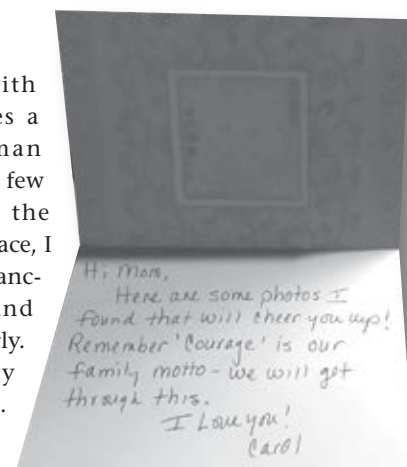 ith
es a
man
few
the
ace, I
anc-
nd
rly.
y
.
Hi Mom,
Here are some photos I
found that will cheer you up!
Remember 'Courage' is our
family motto - we will get
through this.
I Love you!
Carol